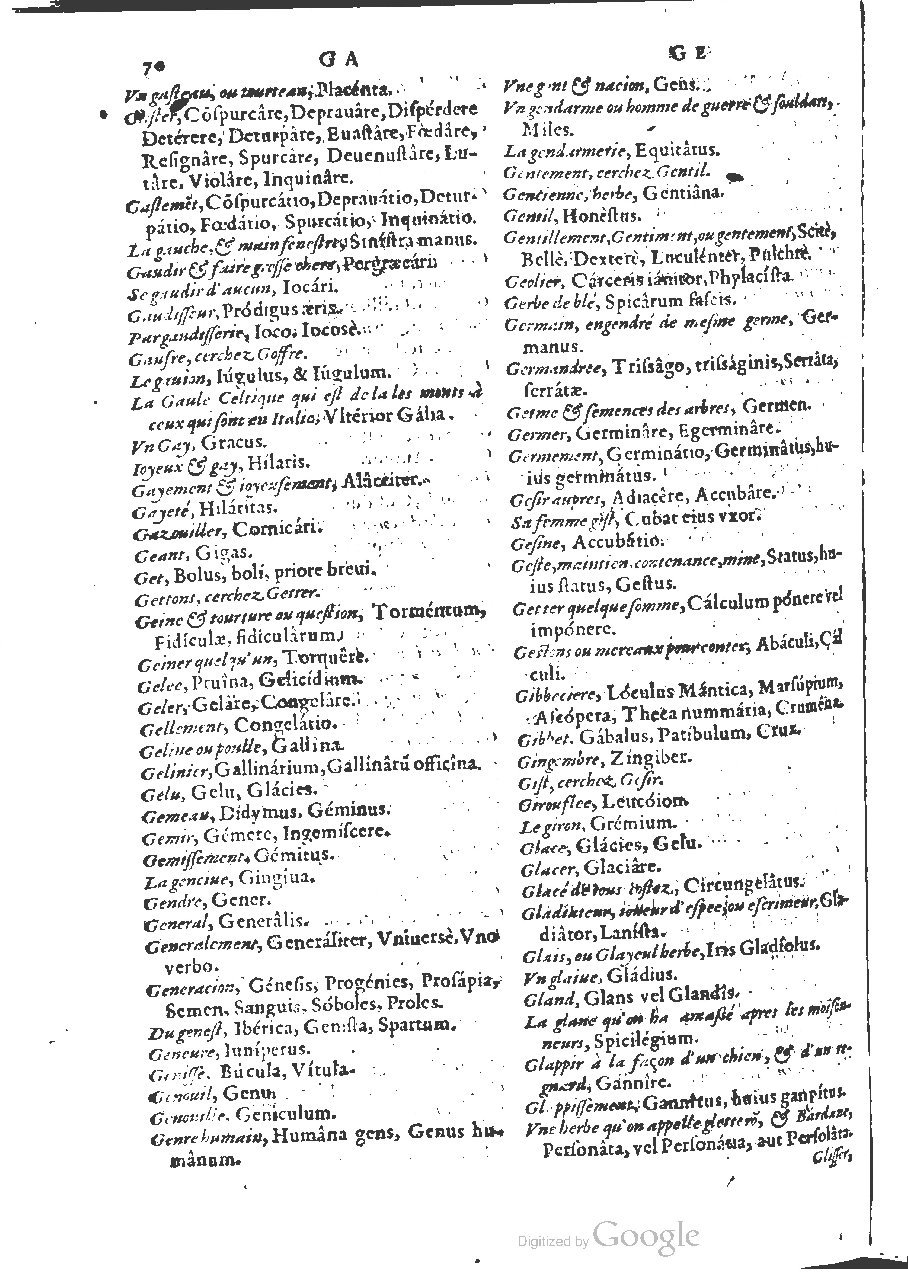 70
G A
Vn gasteau, ou tourteau, Placénta.
Gaster, Cõſpurcâre, Deprauâre, Diſpérdere
Detérere, Deturpâre, Euaſtâre, Fœdâre,
Reſignâre, Spurcâre, Deuenuſtâre, Lu-
târe, Violâre, Inquinâre.
Gaſtemẽt, Cõſpurcátio, Deprauátio, Detur-
pátio, Fœdátio, Spurcátio, Inquinátio.
La gauche, & main ſeneſtre, Siníſtra manus.
Gaudir & faire groſſe chere, Pergræcári
Se gaudir d'aucun, Iocári.
Gaudiſſeur, Pródigus æris.
Par gaudiſſerie, Ioco, Iocosè.
Gaufre, cerchez Goffre.
Le gauion, Iúgulus, & Iúgulum.
La Gaule Celtique qui eſt de la les monts à
ceux qui ſont en Italie, Vltérior Gália.
Vn Gay, Gracus.
Ioyeux & gay, Hílaris.
Gayement & ioyeuſement, Alácriter.
Gayeté, Hiláritas.
Gazouiller, Cornicári.
Geant, Gigas.
Get, Bolus, boli, priore breui.
Gettons, cerchez Getter.
Geine & tourture ou queſtion, Torméntum,
Fidículæ, fidiculàrum,
Geiner quelqu'un, Torquêre.
Gelee, Pruîna, Gelicídium.
Geler, Gelâre, Congelâre.
Gellement, Congelátio.
Geline ou poulle, Gallína.
Gelinier, Gallinárium, Gallinârũ officína.
Gelu, Gelu, Glácies.
Gemeau, Dídymus, Géminus.
Gemir, Gémere, Ingemíſcere.
Gemiſſement, Gémitus.
La genciue, Gingiua.
Gendre, Gener.
General, Generâlis.
Generalement, Generáliter, Vniuersè. Vno
verbo.
Generacion, Géneſis, Progénies, Proſápia,
Semen, Sanguis, Sóboles, Proles.
Du geneſt, Ibérica, Geniſta, Spartum.
Geneure, Iuníperus.
Geniſſe, Búcula, Vítula.
Genouil, Genu
Genouille, Genículum.
Genre humain, Humâna gens, Genus hu-
mânum.
G E
Vne gent & nacion, Gens.
Vn gendarme ou homme de guerre & ſouldan,
Miles.
La gendarmerie, Equitâtus.
Gentement, cerchez Gentil.
Gentienne, herbe, Gentiâna.
Gentil, Honêſtus.
Gentillement, Gentiment, ou gentement, Scitè,
Bellè, Dexterè, Luculénter, Pulchrè.
Geolier, Cárceris iánitor, Phylacíſta.
Gerbe de blé, Spicârum faſcis.
Germain, engendré de meſme germe, Ger-
manus.
Germandree, Triſſâgo, triſſáginis, Serrâta,
ſerrátæ.
Germe & ſemences des arbres, Germen.
Germer, Germinâre, Egermináre.
Germement, Germinátio, Germinâtus, hu-
ius germinátus.
Geſir aupres, Adiacêre, Accubâre.
Sa femme giſt, Cubat eius vxor.
Geſine, Accubátio.
Geſte, maintien, contenance, mine, Status, hu-
ius ſtatus, Geſtus.
Getter quelque ſomme, Cálculum pónere vel
impónere.
Gettons ou mereaux pour conter, Abáculi, Cál
culi.
Gibbeciere, Lóculus Mántica, Marſúpium,
Aſcópera, Theca nummária, Crumêna
Gibbet, Gábalus, Patíbulum, Crux.
Gingembre, Zíngiber.
Giſt, cerchez Geſir.
Girouflee, Leucóion
Le giron, Grémium.
Glace, Glácies, Gelu.
Glacer, Glaciâre.
Glacé de tous coſtez, Circungelâtus.
Gladiateur, ioueur d'eſpee, ou eſcrimeur, Gla-
diâtor, Laniſta.
Glais, ou Glayeul herbe, Iris Gladíolus.
Vn glaiue, Gládius.
Gland, Glans vel Glandis.
La glane qu'on ha amaſſé apres les moiſſon-
neurs, Spicilégium.
Glappir à la façon d'un chien, & d'un re-
gnard, Gánnire.
Glappiſſement, Gannítus, huius ganpítus.
Vne herbe qu'on appelle gletterõ, & Bardane,
Perſonâta, vel Perſonátia, aut Perſolâta.
Gliſſer,
Digitized by Google